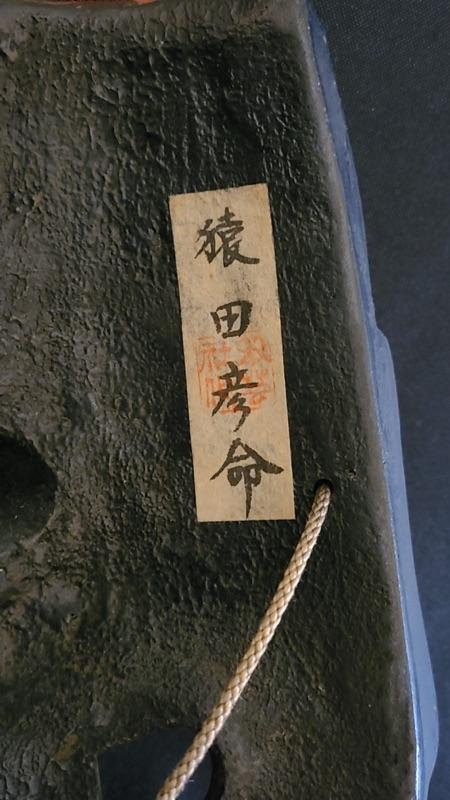 猿田彦命